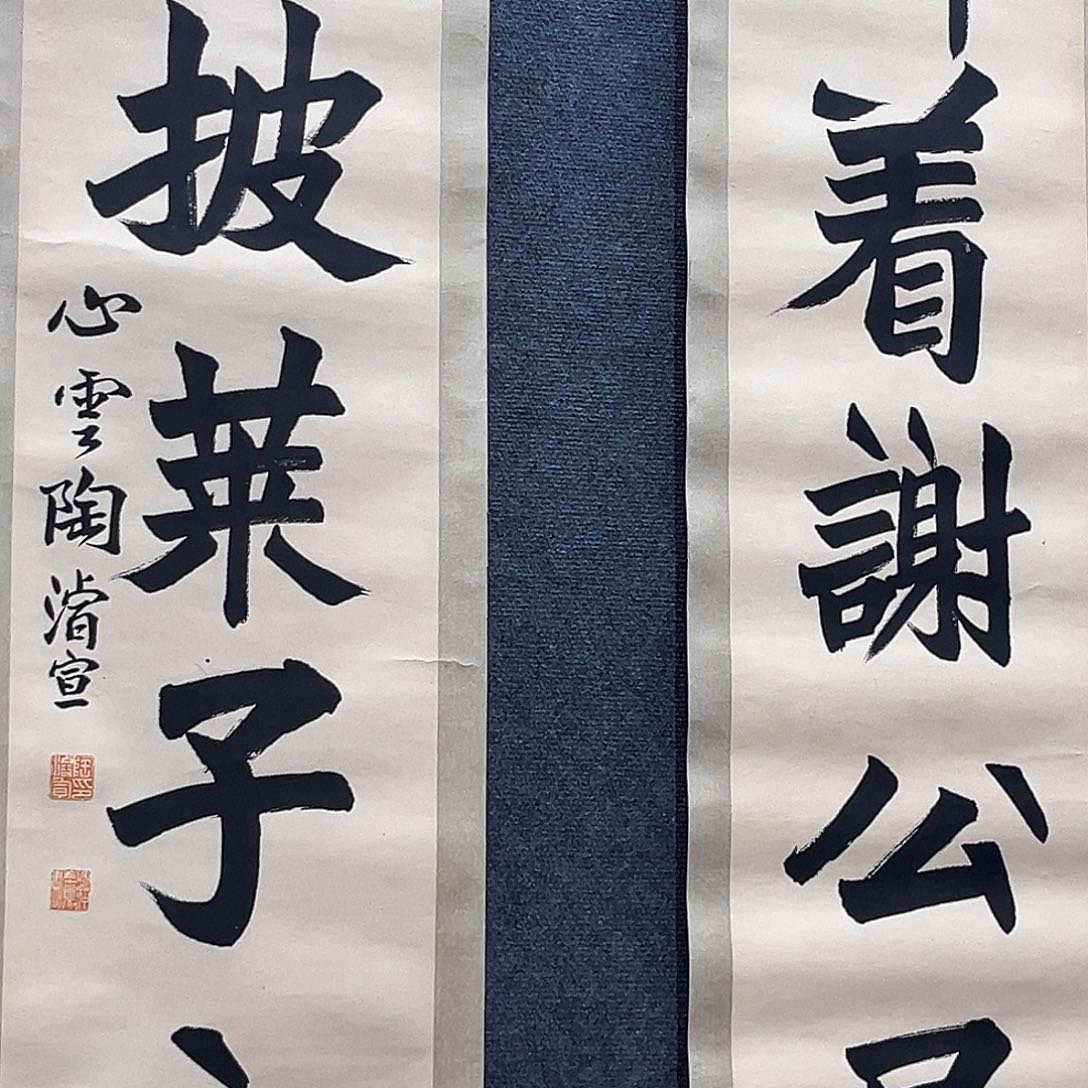 着謝公
披華子
心雲陶濬宣